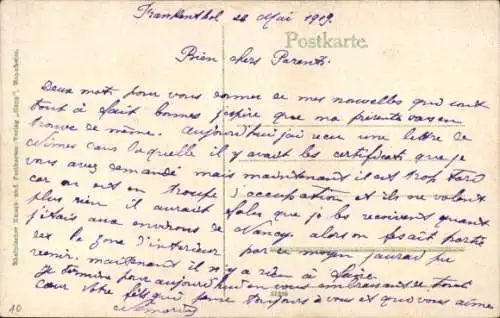 Frankenthal 26 Mai 1919.
Postkarte.
Bien chers Parents
Deux mots pour vous donner de mes nouvelles qui sont
tout à fait bonnes j'espère que ma présente vous en
trouve de même. Aujourd'hui j'ai reçu une lettre de
Nimes dans laquelle il y avait les certificats que je
vous avez demandé mais maintenant il est trop tard
car on est en troupe d'occupation et ils ne veulent
plus rien il aurait falu que je les recoivent quand
j'étais aux environs de Nancy. alors on fesait partie
de la zone d'interieur par ce moyen j'aurai pu
venir. maintenant il n'y a rien à faire.
Je termine pour aujourd'hui en vous embrassant de tout
cœur Votre fils qui pense toujours à vous et que vous aime
Rheinischer Kunst- und Postkarten-Verlag Mannheim.
10